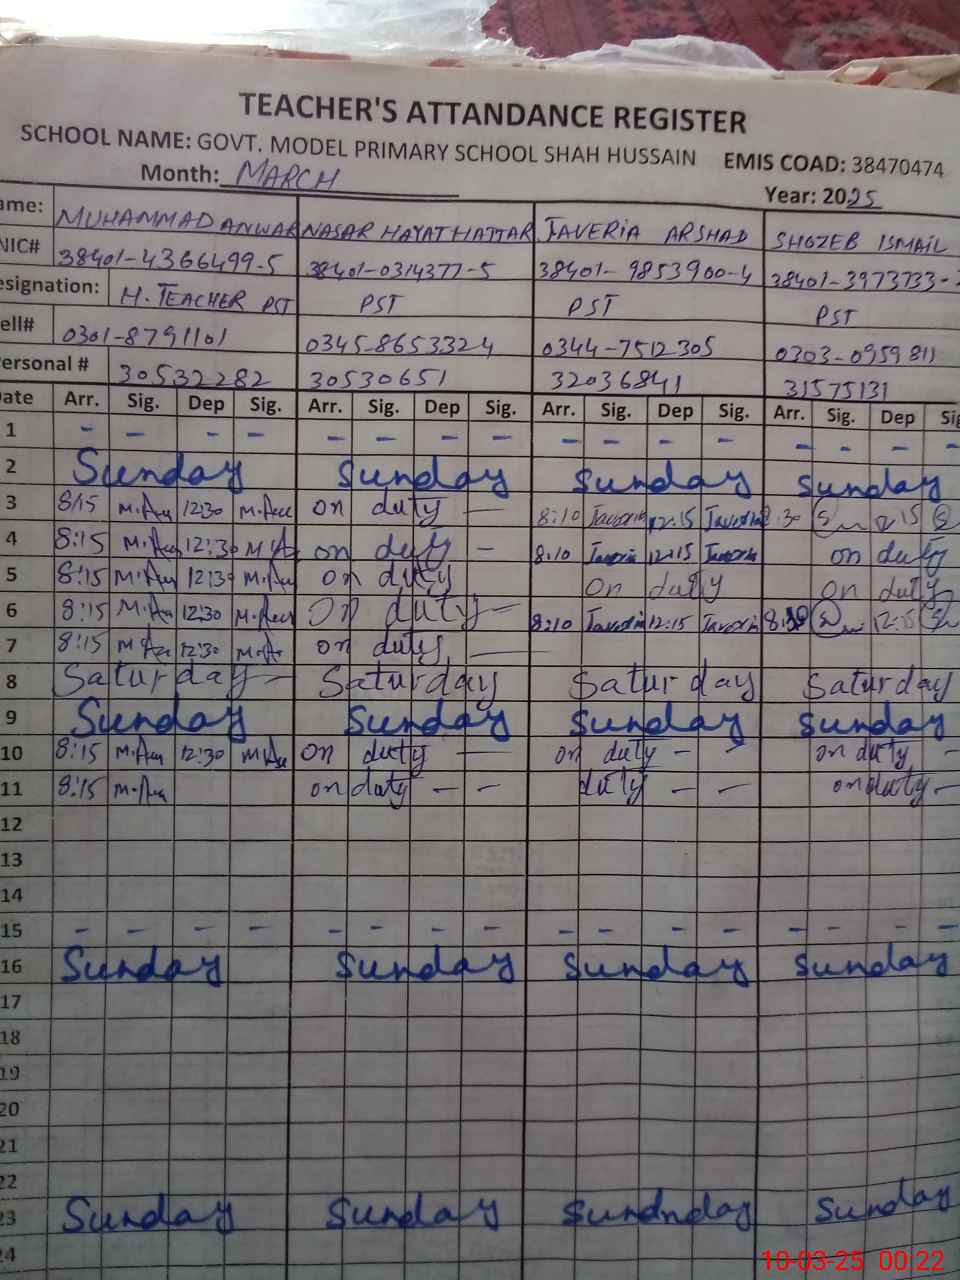 TEACHER'S ATTANDANCE REGISTER
SCHOOL NAME: GOVT. MODEL PRIMARY SCHOOL SHAH HUSSAIN EMIS COAD: 38470474
Month: MARCH Year: 2025
ame: MUHAMMAD ANWAR NASAR HAYAT HATTAR JAVERIA ARSHAD SHOZEB ISMAIL
NIC# 38401-4366499-5 38401-0314377-5 38401-9853900-4 38401-3973733-
esignation: H. TEACHER PST PST PST PST
ell# 0301-8791101 0345-8653324 0344-7512305 0303-0959811
ersonal # 30532282 30530651 32036841 31575131
Date Arr. Sig. Dep Sig. Arr. Sig. Dep Sig. Arr. Sig. Dep Sig. Arr. Sig. Dep Sig
1 - - - - - - - - - - - - - - - -
2 Sunday Sunday Sunday Sunday
3 8:15 12:30 on duty — 8:10 Javeria 12:15 Javeria 8:30 12:15
4 8:15 12:30 on duty - 8:10 Javeria 12:15 Javeria on duty
5 8:15 12:30 on duty on duty on duty
6 8:15 12:30 on duty — 8:10 Javeria 12:15 Javeria 12:15
7 8:15 12:30 on duty —
8 Saturday Saturday Saturday Saturday
9 Sunday Sunday Sunday Sunday
10 8:15 12:30 on duty — on duty - - on duty -
11 8:15 on duty - - duty - - on duty -
12
13
14
15 - - - - - - - - - - - - - - - -
16 Sunday Sunday Sunday Sunday
17
18
19
20
21
22
23 Sunday Sunday Sundnday Sunday
24
10-03-25 00:22